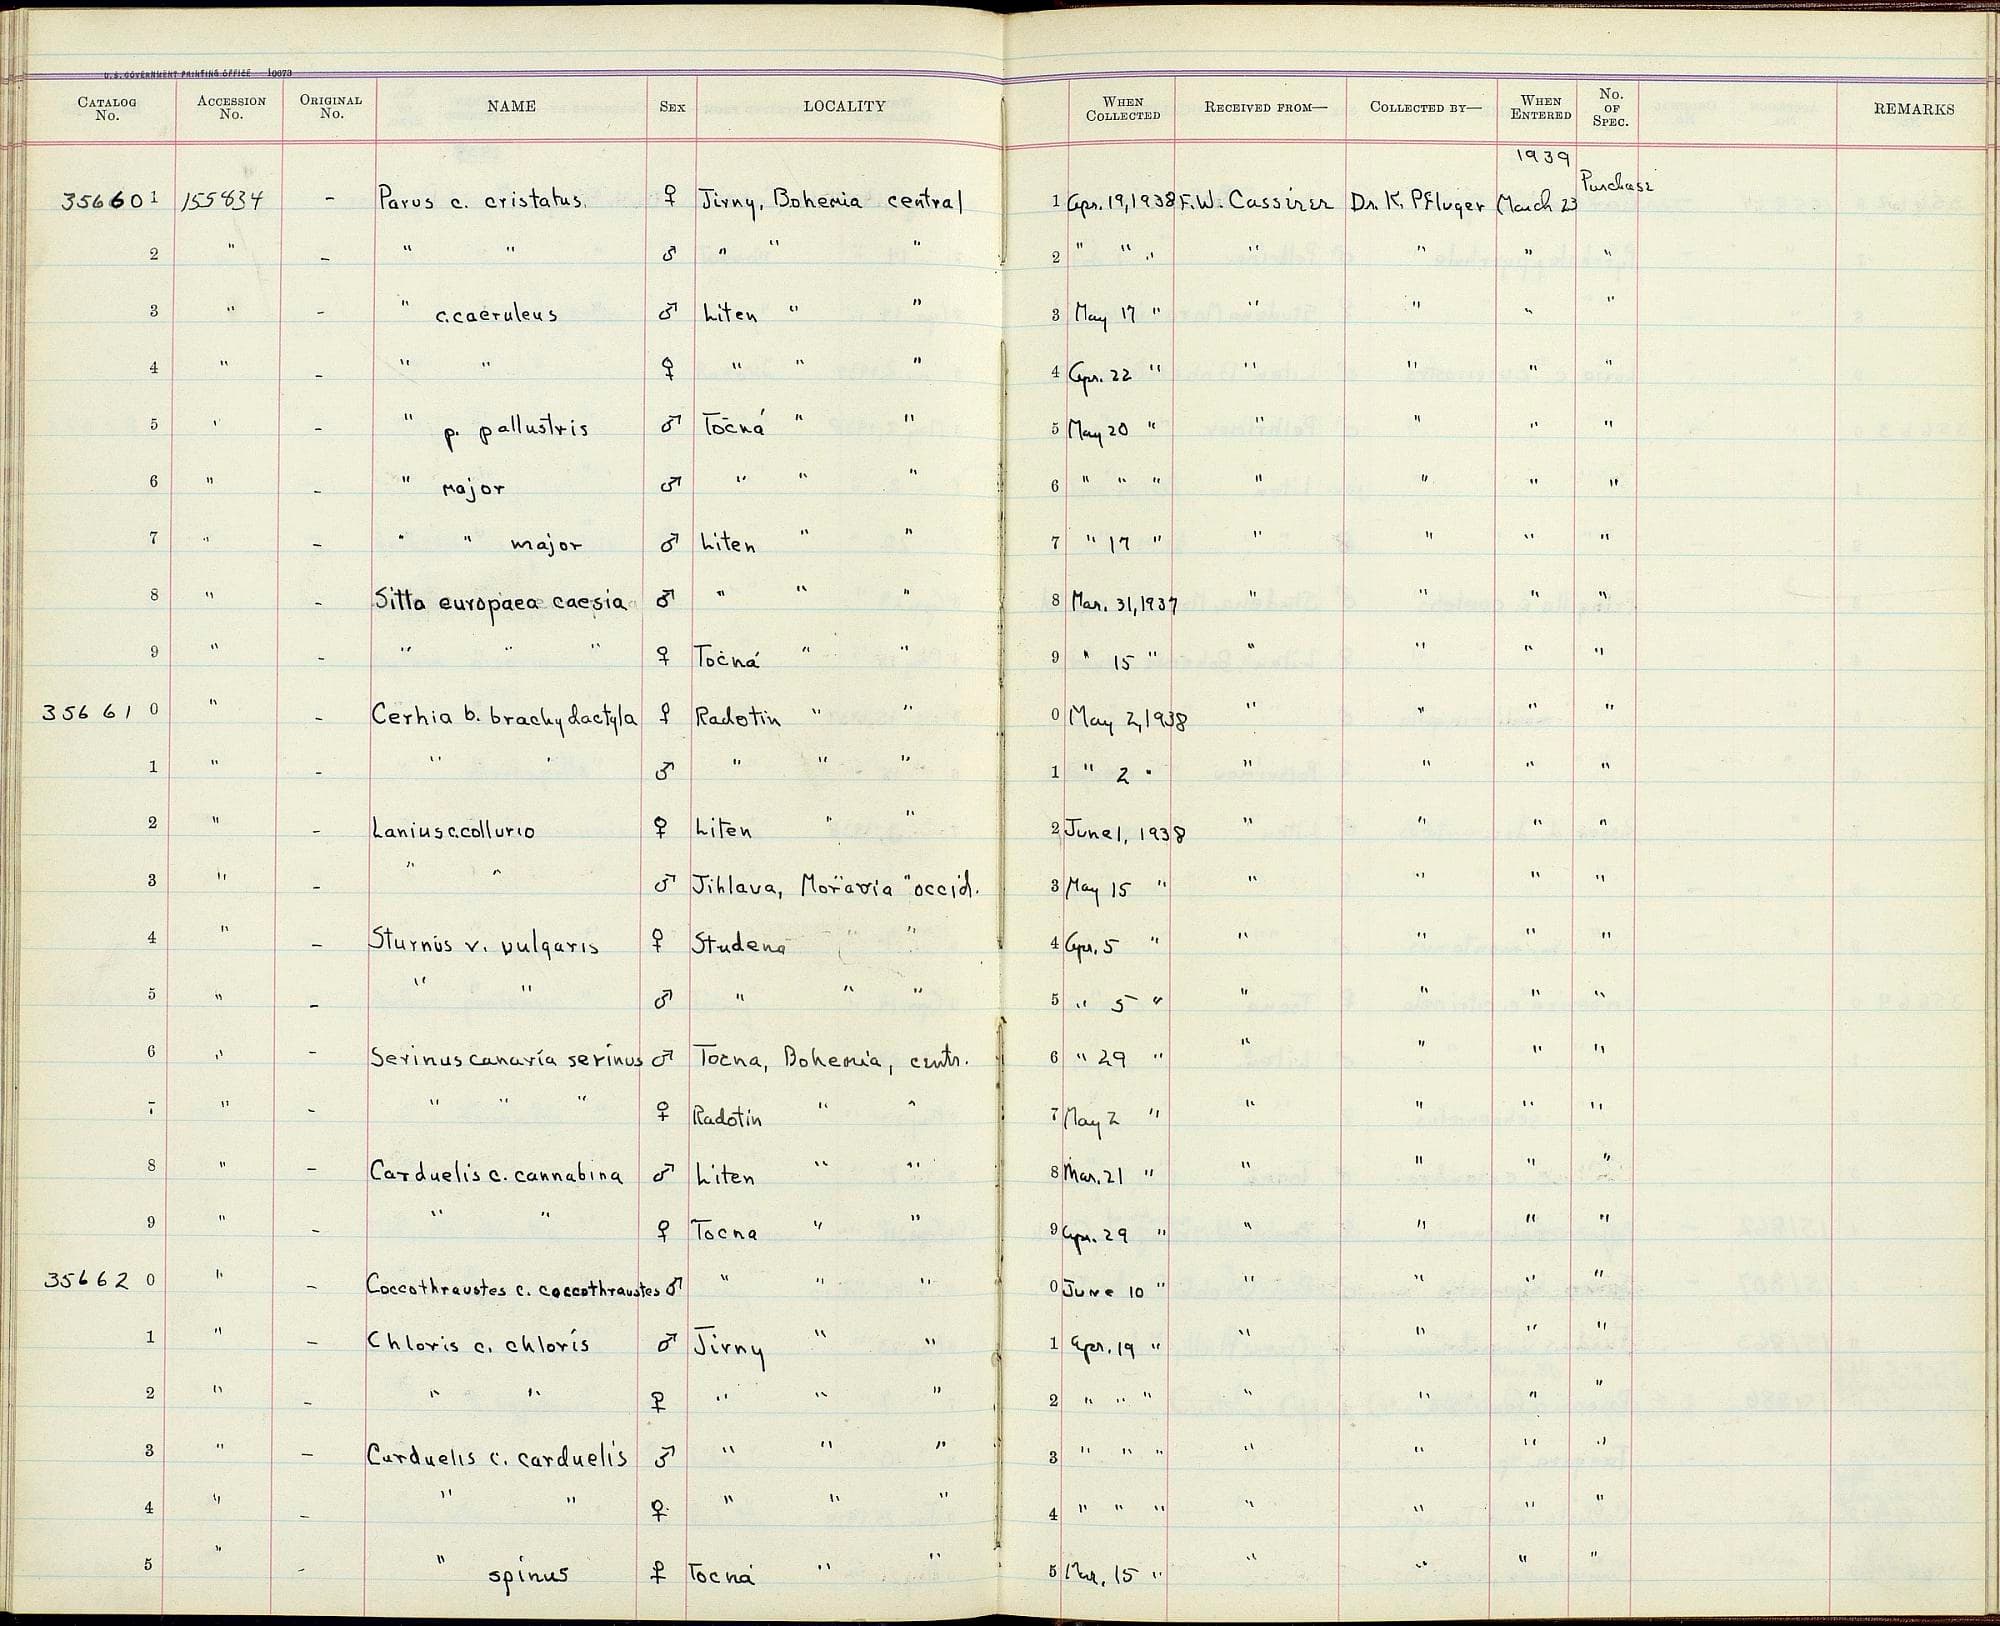 U.S. GOVERNMENT PRINTING OFFICE 10073
CATALOG No. ACCESSION No. ORIGINAL No. NAME SEX LOCALITY WHEN COLLECTED RECEIVED FROM— COLLECTED BY— WHEN ENTERED No. OF SPEC. REMARKS
1939
356601 155834 - Parus c. cristatus. ♀ Jirny, Bohemia central 1 Apr. 19, 1938 F.W. Cassirer Dr. K. Pfluger March 23 Purchase
2 " - " " ♂ " " " 2 " " " " " " "
3 " - " c. caeruleus ♂ Liten " " 3 May 17 " " " " "
4 " - " " ♀ " " " 4 Apr. 22 " " " " "
5 " - " p. pallustris ♂ Točná " " 5 May 20 " " " " "
6 " - " major ♂ " " " 6 " " " " " " "
7 " - " " major ♂ Liten " " 7 " 17 " " " " "
8 " - Sitta europaea caesia ♂ " " " 8 Mar. 31, 1937 " " " "
9 " - " " " ♀ Točná " " 9 " 15 " " " " "
356610 " - Cerhia b. brachydactyla ♀ Radotin " " 0 May 2, 1938 " " " "
1 " - " " ♂ " " " 1 " 2 " " " " "
2 " - Lanius c. collurio ♀ Liten " " 2 June 1, 1938 " " " "
3 " - " " ♂ Jihlava, Moravia occid. 3 May 15 " " " " "
4 " - Sturnus v. vulgaris ♀ Studena " " 4 Apr. 5 " " " " "
5 " - " " ♂ " " " 5 " 5 " " " " "
6 " - Serinus canaria serinus ♂ Tocna, Bohemia, centr. 6 " 29 " " " " "
7 " - " " " ♀ Radotin " " 7 May 2 " " " " "
8 " - Carduelis c. cannabina ♂ Liten " " 8 Mar. 21 " " " " "
9 " - " " ♀ Tocna " " 9 Apr. 29 " " " " "
356620 " - Coccothraustes c. coccothraustes ♂ " " " 0 June 10 " " " " "
1 " - Chloris c. chloris ♂ Jirny " " 1 Apr. 19 " " " " "
2 " - " " ♀ " " " 2 " " " " " " "
3 " - Carduelis c. carduelis ♂ " " " 3 " " " " " " "
4 " - " " ♀ " " " 4 " " " " " " "
5 " - " spinus ♀ Tocná " " 5 Mar. 15 " " " " "